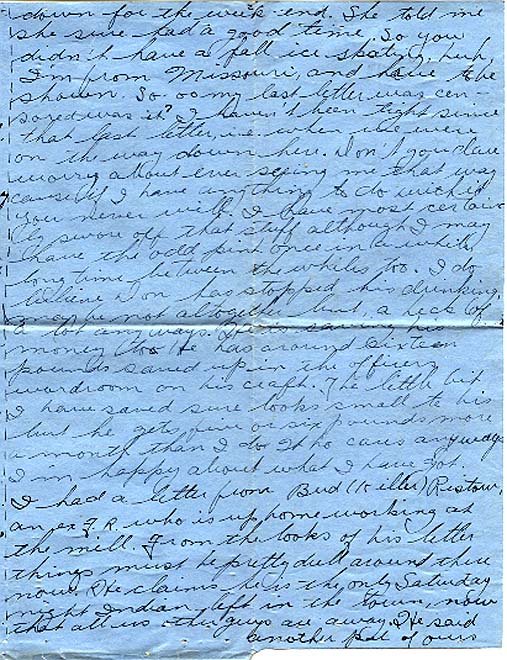 down for the week end. She told me
she sure had a good time. So you
didn't have a fall ice skating, huh,
I'm from Missouri, and have to be
shown. So-oo my last letter was cen-
sored was it? I haven't been tight since
that last letter, i.e. when we were
on the way down here. Don't you dare
worry about ever seeing me that way
cause if I have anything to do with it
you never will. I have most certain
ly swore off that stuff although I may
have the odd pint once in a while,
long time between the whiles too. I do
believe Don has stopped his drinking,
maybe not altogether but, a heck of
a lot anyways. He is saving his
money too. He has around sixteen
pounds saved up in the officers
wardroom on his craft. The little bit
I have saved sure looks small to his
but he gets five or six pounds more
a month than I do. Who cares anyways
I'm happy about what I have got.
I had a letter from Bud (Killer) Ristow,
an ex F.R. who is up home working at
the mill. From the looks of his letter
things must be pretty dull around there
now. He claims he is the only Saturday
night Indian left in the town, now
that all us other guys are away. He said
another pal of ours